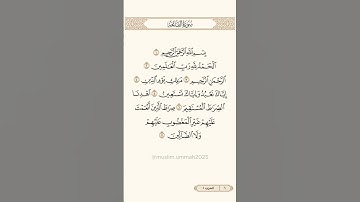 سُورَةُ الفَاتِحَةِ
بِسْمِ اللَّهِ الرَّحْمَٰنِ الرَّحِيمِ ۝
الْحَمْدُ لِلَّهِ رَبِّ الْعَالَمِينَ ۝
الرَّحْمَٰنِ الرَّحِيمِ ۝ مَالِكِ يَوْمِ الدِّينِ ۝
إِيَّاكَ نَعْبُدُ وَإِيَّاكَ نَسْتَعِينُ ۝ اهْدِنَا
الصِّرَاطَ الْمُسْتَقِيمَ ۝ صِرَاطَ الَّذِينَ أَنْعَمْتَ
عَلَيْهِمْ غَيْرِ الْمَغْضُوبِ عَلَيْهِمْ
وَلَا الضَّالِّينَ ۝
@muslim.ummah2025